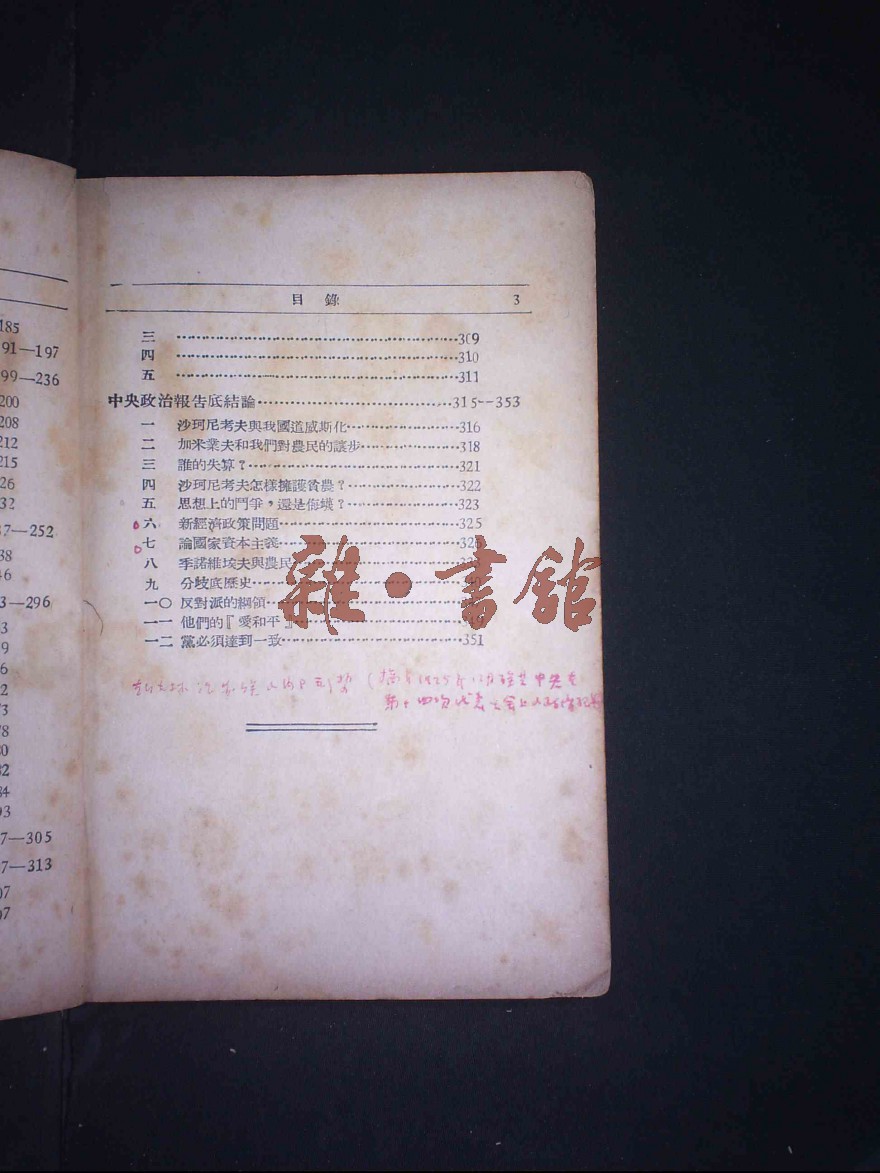 185
91—197
99—236
200
208
212
215
26
32
37—252
38
46
3—296
3
9
6
2
73
78
80
82
84
93
7—305
7—313
07
07
目錄 3
三 309
四 310
五 311
中央政治報告底結論 315--353
一 沙珂尼考夫與我國道威斯化 316
二 加米業夫和我們對農民的讓步 318
三 誰的失算？ 321
四 沙珂尼考夫怎樣擁護貧農？ 322
五 思想上的鬥爭，還是侮衊？ 323
六 新經濟政策問題 325
七 論國家資本主義
八 季諾維埃夫與農民
九 分歧底歷史
一〇 反對派的綱領
一一 他們的『愛和平』
一二 黨必須達到一致 351
第十四次代表大會上
雜·書館